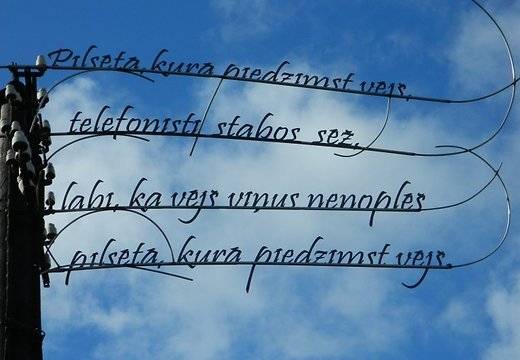 Pilsētā, kurā piedzimst vējš,
telefonisti stabos sēž,
labi, ka vējš viņus nenoplēš
pilsētā, kurā piedzimst vējš.